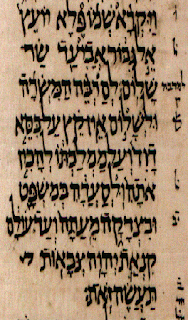 ויקרא שמו פלא יועץ
אל גבור אביעד שר
שלום לםרבה המשרה
ולשלום אין קץ על כסא
דוד ועל ממלכתו להכין
אתה ולסעדה במשפט
ובצדקה מעתה ועד עולם
קנאת יהוה צבאות
תעשה זאת